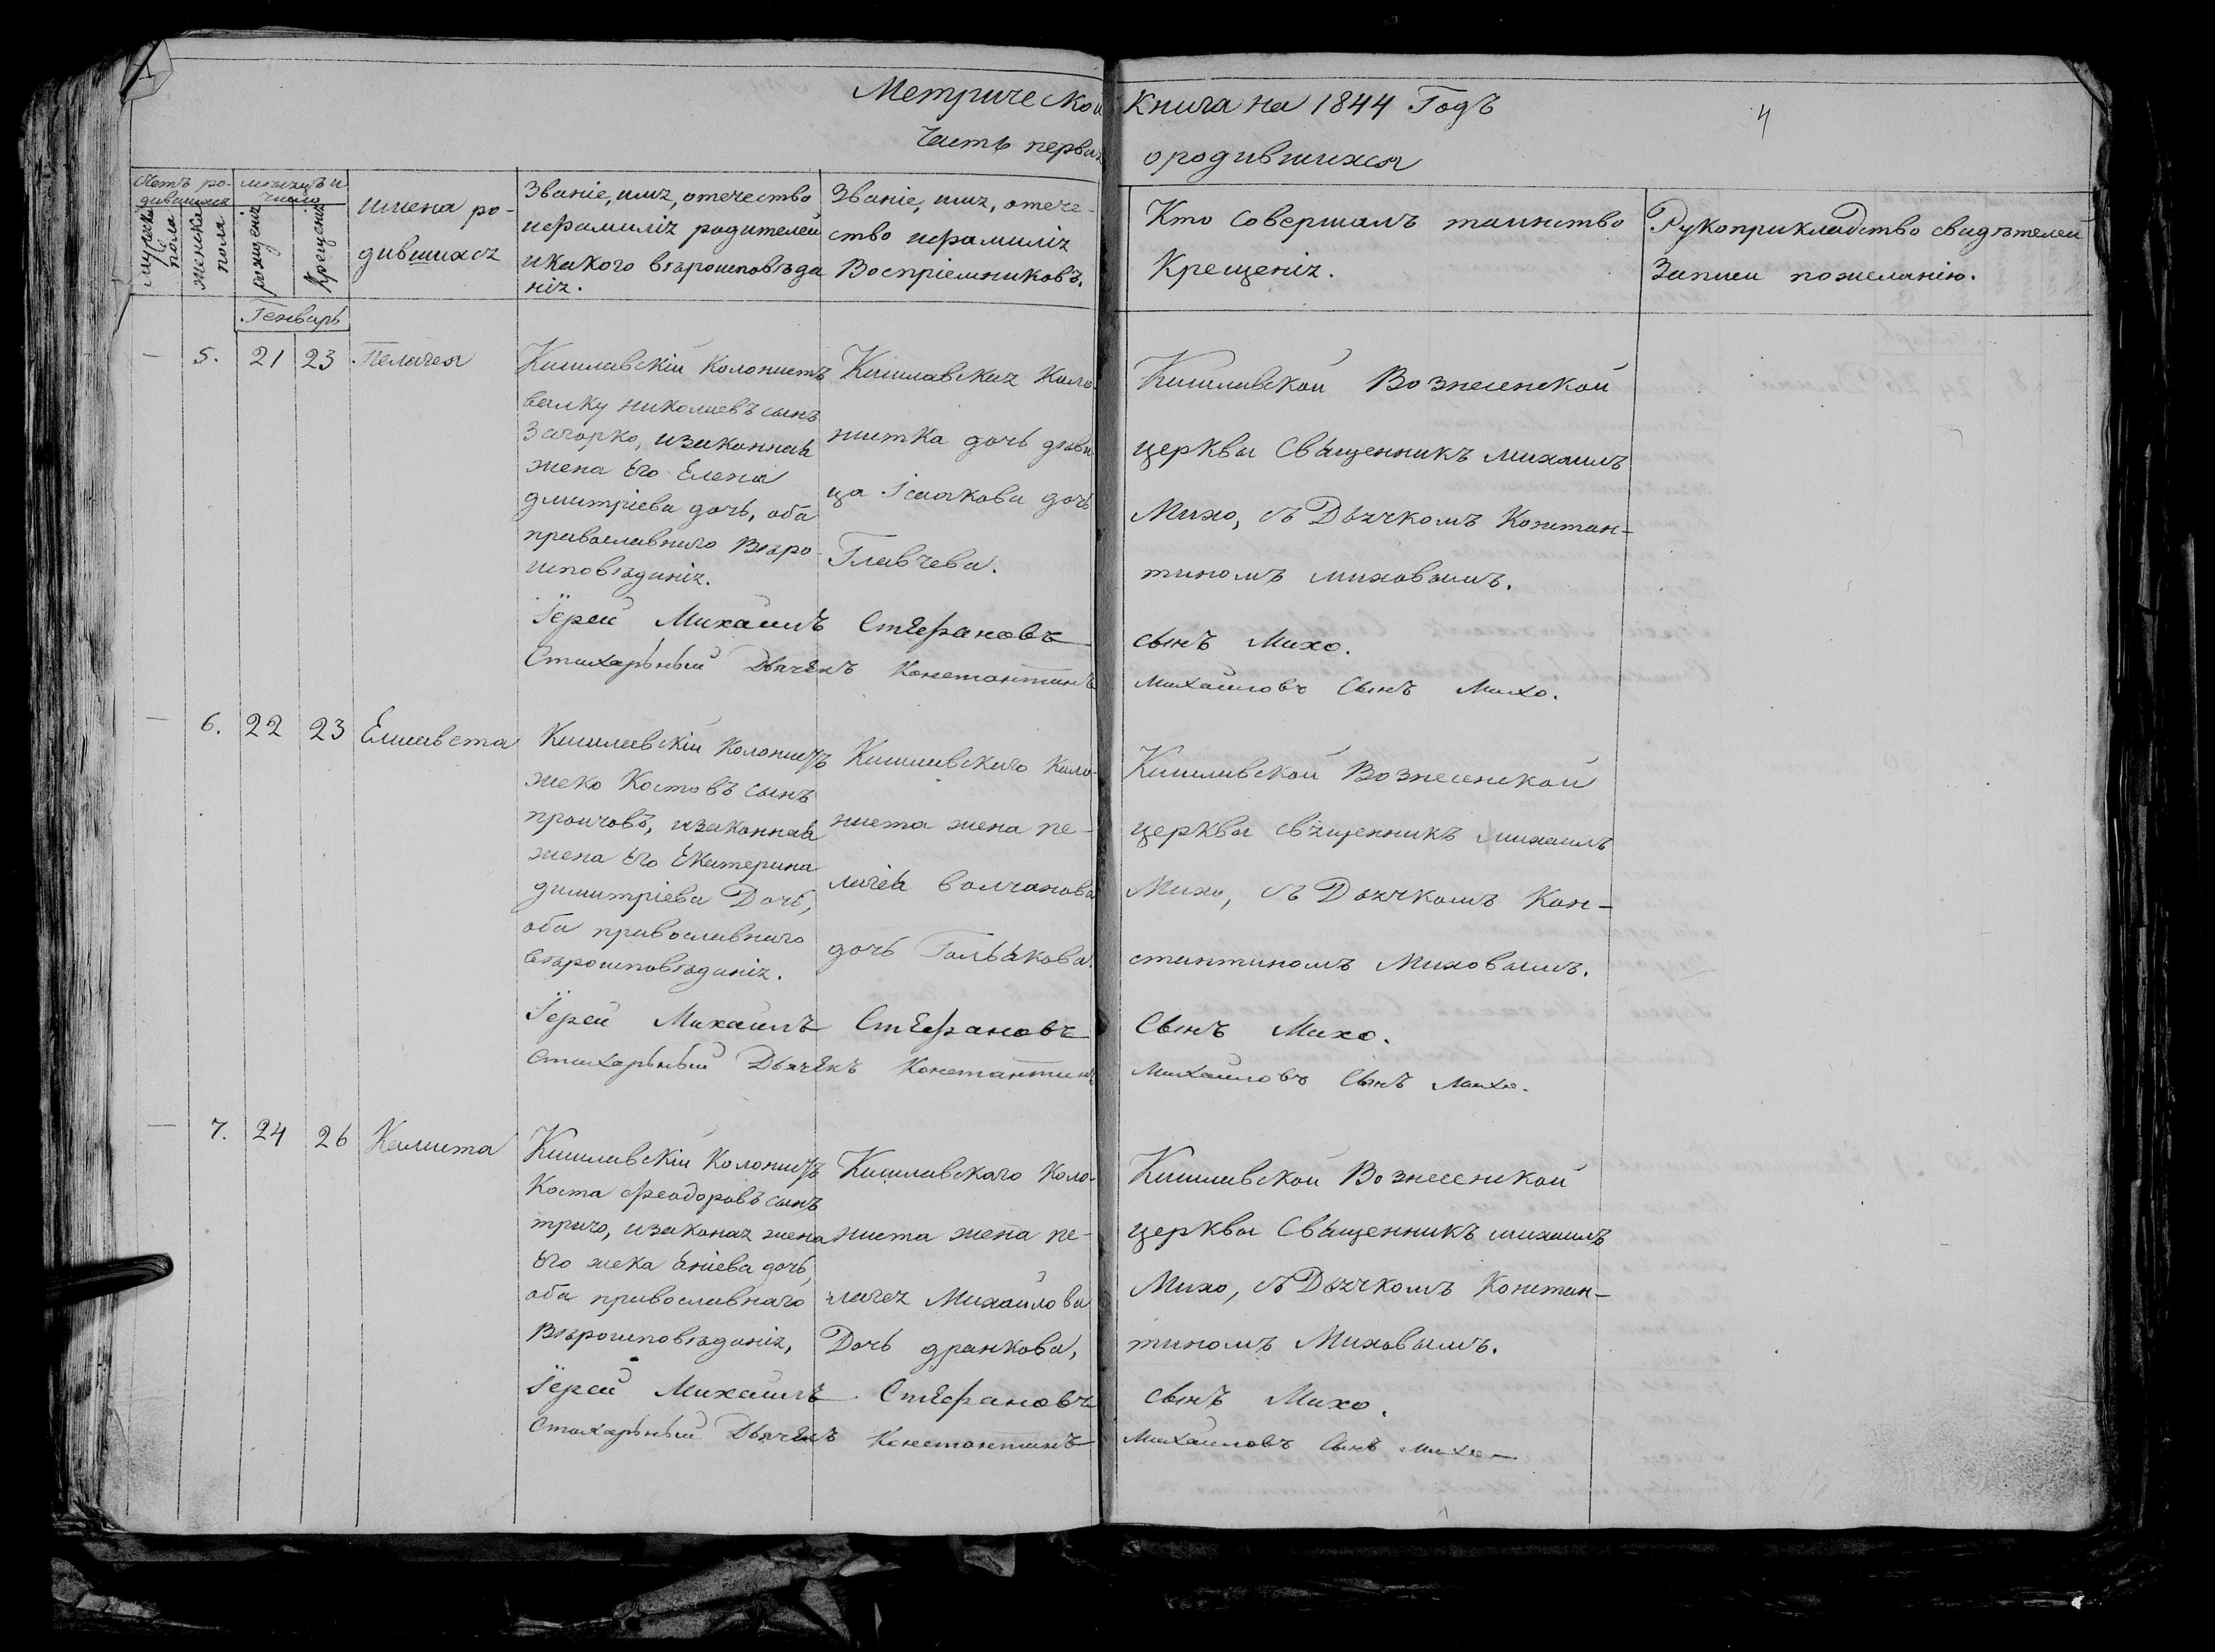 Метрической Книга на 1844 Годъ
4
Часть первая о родившихся
Счетъ ро-
дившихся
мужеска
пола
женска
пола
мѣсяцъ и
число
рожденія
крещенія
имена ро-
дившихся
Званіе, имя, отечество
и фамилія родителей
и какого вѣроисповѣда
нія.
Званіе, имя, отече-
ство и фамилія
Воспріемниковъ.
Кто совершалъ таинство
Крещенія.
Рукоприкладство свидѣтелей
Записи по желанію.
Генварь
— 5. 21 23 Пелагея
Кишлавскій Колонистъ
велку николаевъ сынъ
Загорко, и законная
жена его Елена
дмитріева дочь, оба
православнаго Вѣро-
исповѣданія.
Кишлавская Коло-
нистка дочь дѣви
ца Ісаакова дочь
Главчева.
Кишлавской Вознесенской
церквы Священникъ михаилъ
Михо, съ Дьячкомъ Констан-
тиномъ миховымъ.
Іерей Михаилъ Стефановъ сынъ Михо.
Стихарьный Дьячекъ Константинъ Михайловъ Сынъ Михо.
— 6. 22 23 Елисавета
Кишлавскій Колонистъ
жеко Костовъ сынъ
проичовъ, и законная
жена его Екатерина
димитріева Дочь,
оба православнаго
вѣроисповѣданія.
Кишлавскаго Коло-
ниста жена пе-
лагея волчанова
дочь
Кишлавской Вознесенской
церквы священникъ михаилъ
Михо, съ Дьячкомъ Кон-
стантиномъ Миховымъ.
Іерей Михаилъ Стефановъ Сынъ Михо.
Стихарьный Дьячекъ Константинъ Михайловъ Сынъ Михо.
— 7. 24 26 Калита
Кишлавскій Колонистъ
Коста феодоровъ сынъ
триго, и законая жена
его жека еніева дочь,
оба православнаго
Вѣроисповѣданія,
Кишлавскаго Коло-
ниста жена пе-
лагея Михайлова
Дочь дранкова,
Кишлавской Вознесенской
церквы Священникъ михаилъ
Михо, съ Дьячкомъ Констан-
тиномъ Миховымъ.
Іерей Михаилъ Стефановъ сынъ Михо.
Стихарьный Дьячекъ Константинъ Михайловъ Сынъ Михо